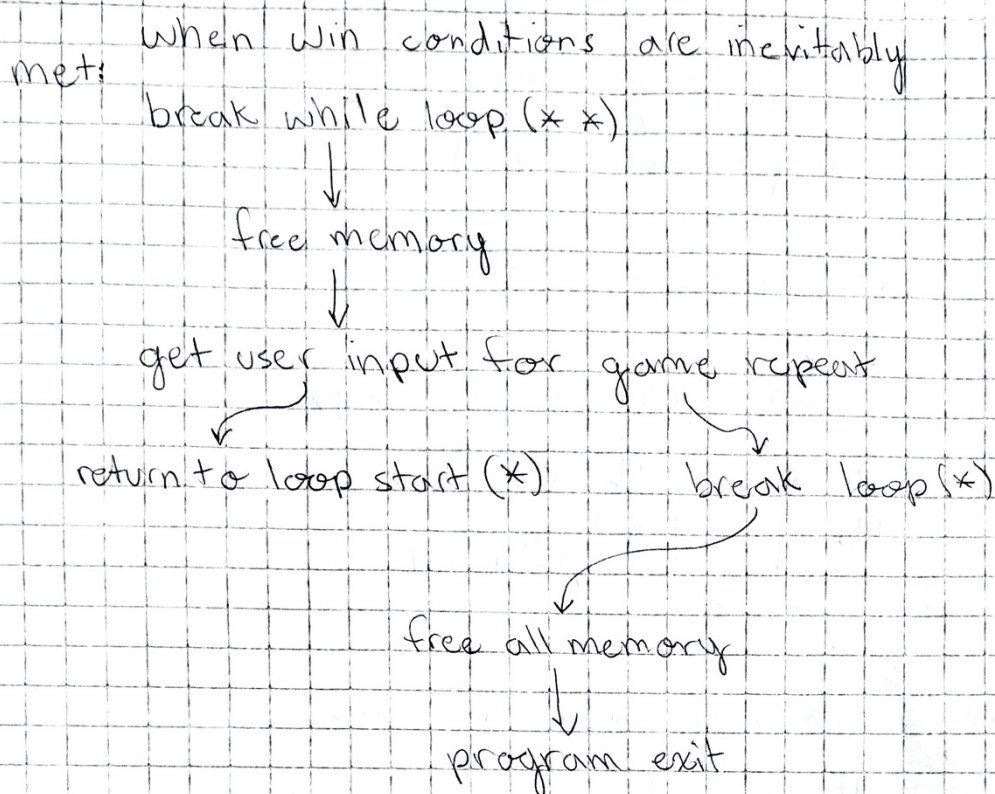 when win conditions are inevitably
met:
break while loop (* *)
free memory
get user input for game repeat
return to loop start (*) break loop (*)
free all memory
program exit